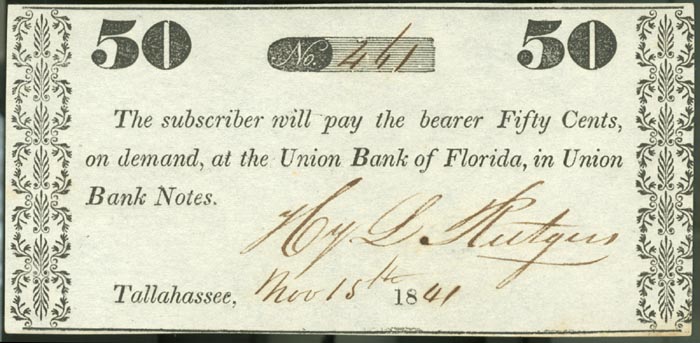 50 No. 461 50
The subscriber will pay the bearer Fifty Cents,
on demand, at the Union Bank of Florida, in Union
Bank Notes.
Hy L Rutgers
Tallahassee, Nov 15th 1841